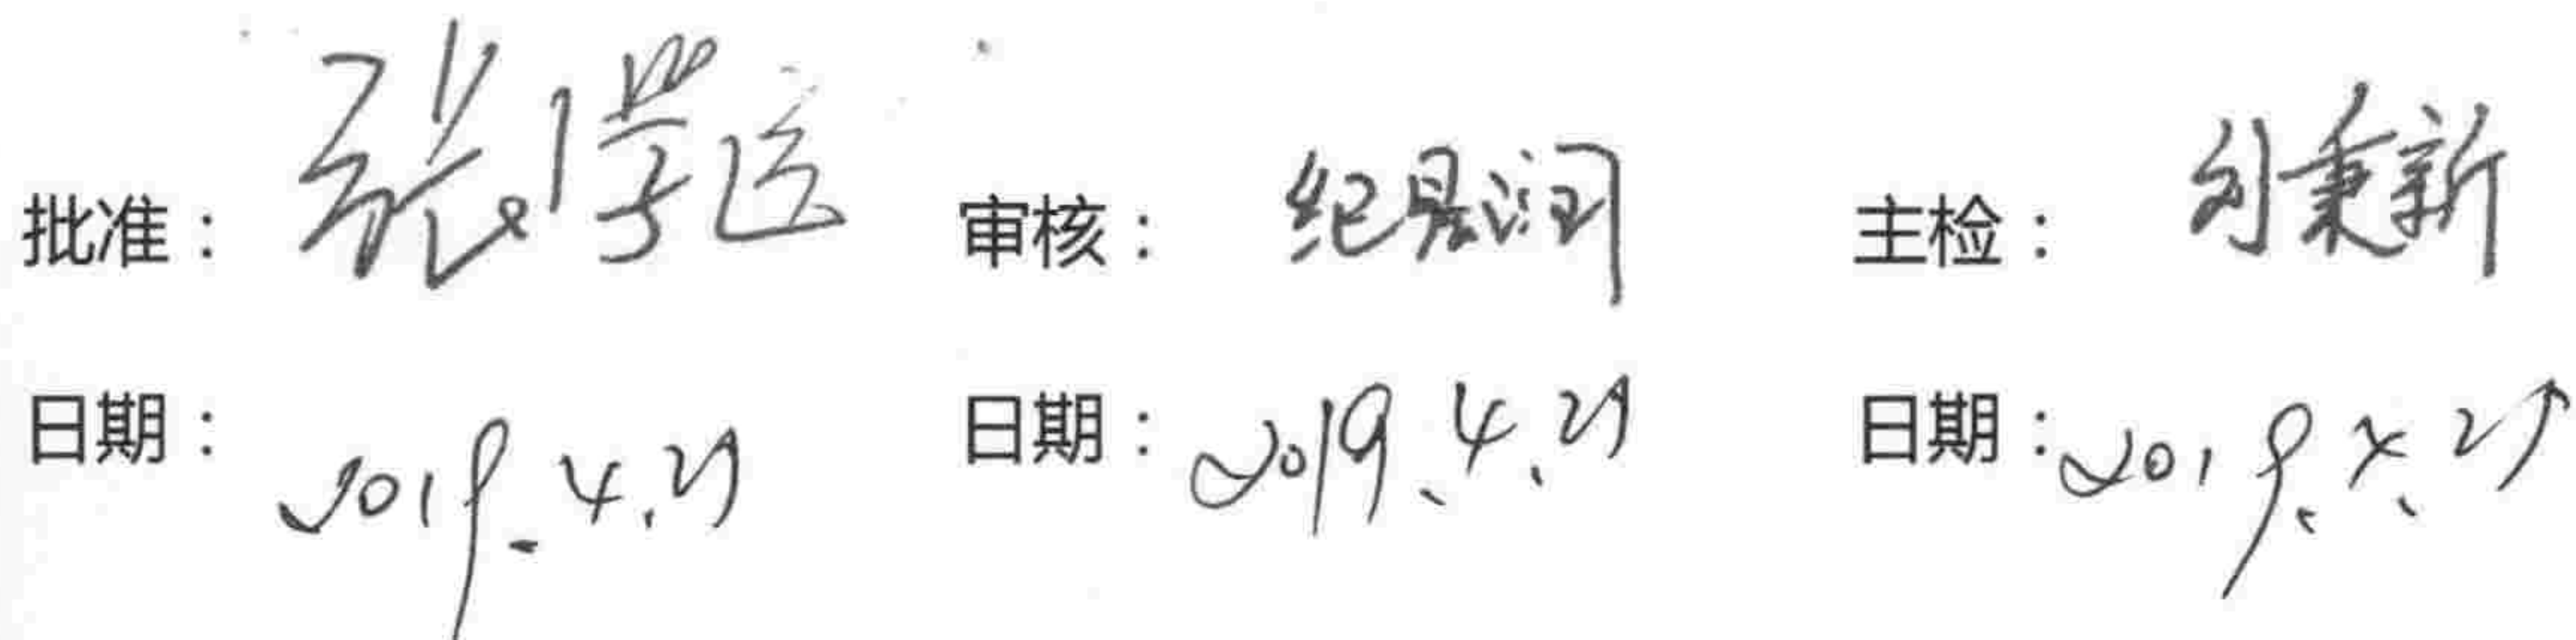 批准: 张学 审核: 纪晨润 主检: 刘秉新
日期: 2019.4.29 日期: 2019.4.29 日期: 2019.4.29